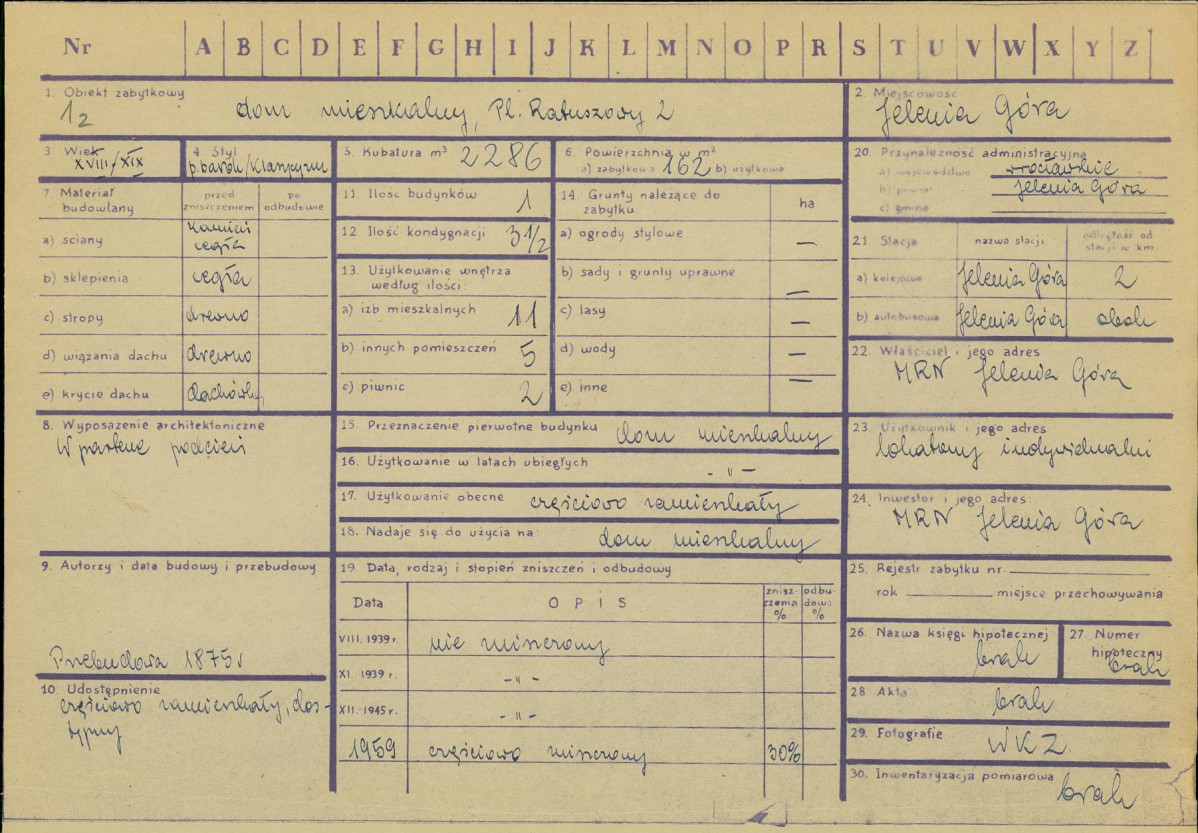 Nr A B C D E F G H I J K L M N O P R S T U V W X Y Z
1. Obiekt zabytkowy
12 dom mieszkalny, Pl. Ratuszowy 2
2. Miejscowość
Jelenia Góra
3. Wiek
XVIII/XIX
4. Styl
p. barok/klasycyzm
5. Kubatura m³ 2286
6. Powierzchnia w m²
a) zabytkowa 162 b) użytkowa
7. Materiał budowlany
przed zniszczeniem
po odbudowie
a) ściany kamień cegła
b) sklepienia cegła
c) stropy drewno
d) wiązania dachu drewno
e) krycie dachu dachówka
8. Wyposażenie architektoniczne
W parterze podcień
9. Autorzy i data budowy i przebudowy
Przebudowa 1875 r
10. Udostępnienie
częściowo zamieszkały, dos-
tępny
11. Ilość budynków 1
12. Ilość kondygnacji 3 1/2
13. Użytkowanie wnętrza
według ilości:
a) izb mieszkalnych 11
b) innych pomieszczeń 5
c) piwnic 2
14. Grunty należące do
zabytku
ha
a) ogrody stylowe —
b) sady i grunty uprawne —
c) lasy —
d) wody —
e) inne —
15. Przeznaczenie pierwotne budynku dom mieszkalny
16. Użytkowanie w latach ubiegłych - " -
17. Użytkowanie obecne częściowo zamieszkały
18. Nadaje się do użycia na: dom mieszkalny
19. Data, rodzaj i stopień zniszczeń i odbudowy
Data
OPIS
znisz-
czenia
%
odbu-
dowa
%
VIII. 1939 r. nie zniszczony
XI. 1939 r. - " -
XII. 1945 r. - " -
1959 częściowo zniszczony 30%
20. Przynależność administracyjna
a) województwo wrocławskie
b) powiat Jelenia Góra
c) gmina
21. Stacja
nazwa stacji
odległość od
stacji w km.
a) kolejowa Jelenia Góra 2
b) autobusowa Jelenia Góra obok
22. Właściciel i jego adres
MRN Jelenia Góra
23. Użytkownik i jego adres
lokatorzy indywidualni
24. Inwestor i jego adres:
MRN Jelenia Góra
25. Rejestr zabytku nr.
rok miejsce przechowywania
26. Nazwa księgi hipotecznej
brak
27. Numer
hipoteczny
brak
28. Akta brak
29. Fotografie WKZ
30. Inwentaryzacja pomiarowa brak